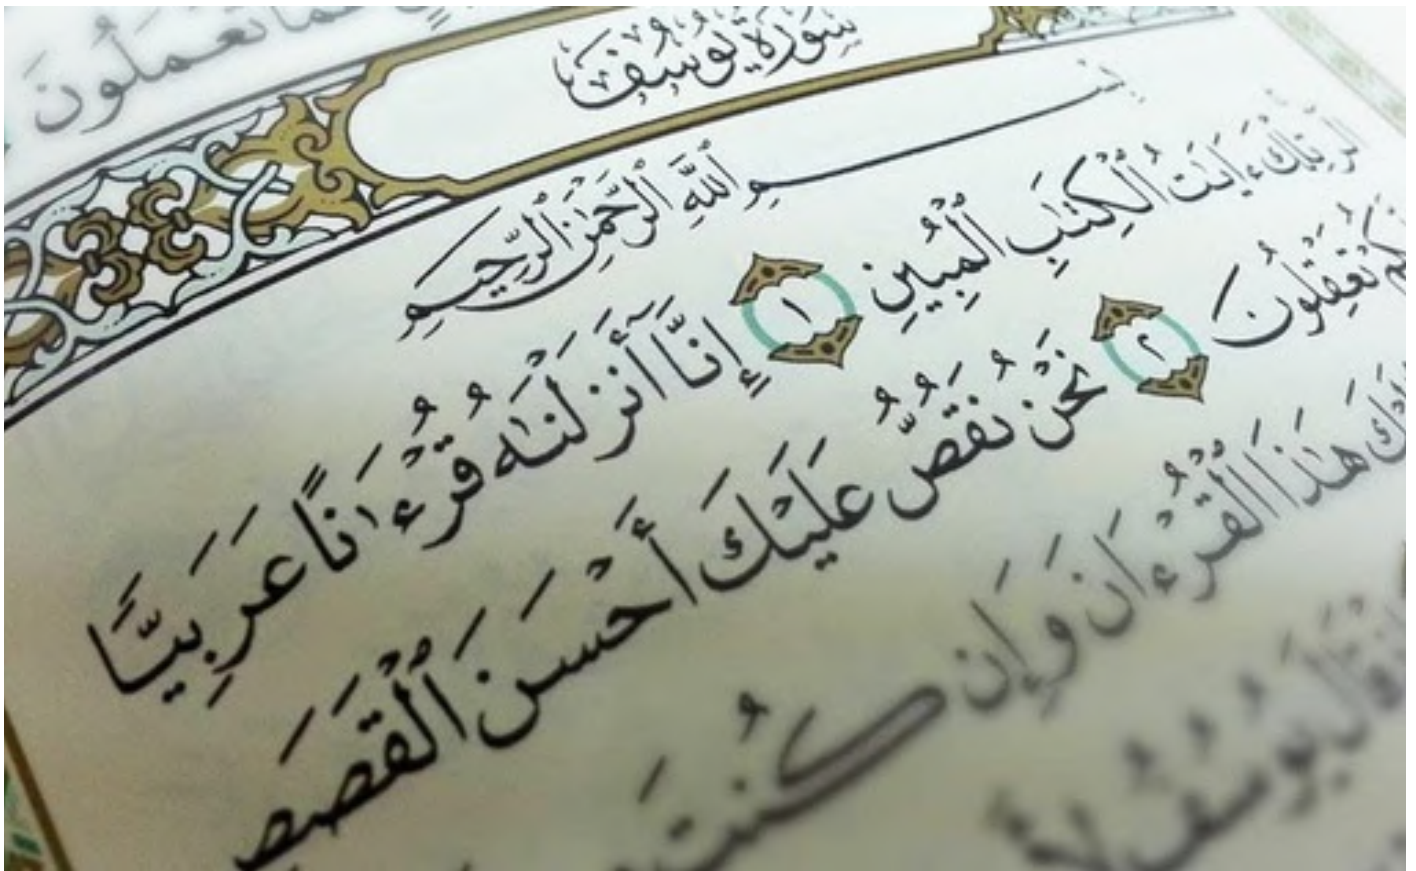 تَعْمَلُونَ
سُورَةُ يُوسُفَ
بِسْمِ ٱللَّهِ ٱلرَّحْمَٰنِ ٱلرَّحِيمِ
الٓر تِلْكَ ءَايَٰتُ ٱلْكِتَٰبِ ٱلْمُبِينِ ١ إِنَّآ أَنزَلْنَٰهُ قُرْءَٰنًا عَرَبِيًّا
تَعْقِلُونَ ٢ نَحْنُ نَقُصُّ عَلَيْكَ أَحْسَنَ ٱلْقَصَصِ
هَٰذَا ٱلْقُرْءَانَ وَإِن كُنتَ
قَالَ يُوسُفُ